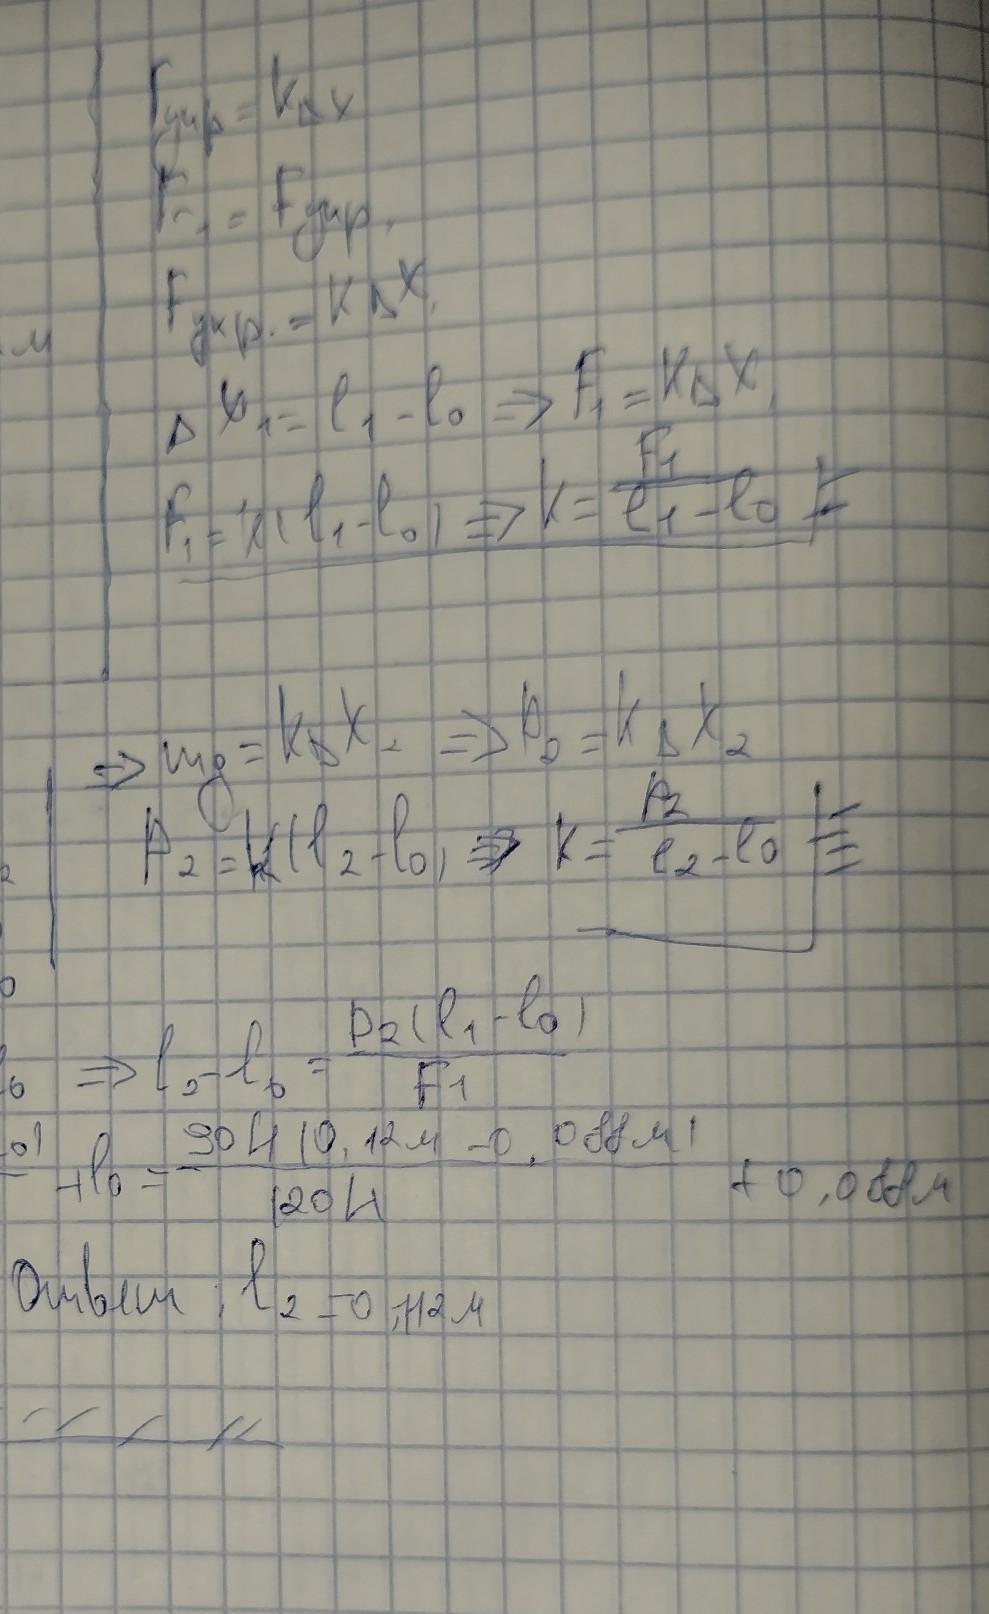 Fупр = kΔx
F₁ = Fупр.
Fупр. = kΔx
м
Δx₁ = l₁ - l₀ => F₁ = kΔx₁
F₁ = k(l₁ - l₀) => k = F₁/(l₁ - l₀) I
=> mg = kΔx₂ => P₂ = kΔx₂
P₂ = k(l₂ - l₀) => k = P₂/(l₂ - l₀) II
=> l₂ - l₀ = P₂(l₁ - l₀)/F₁
+l₀ = 90Н(0,12м - 0,088м)/120Н + 0,088м
Ответ: l₂ = 0,112м